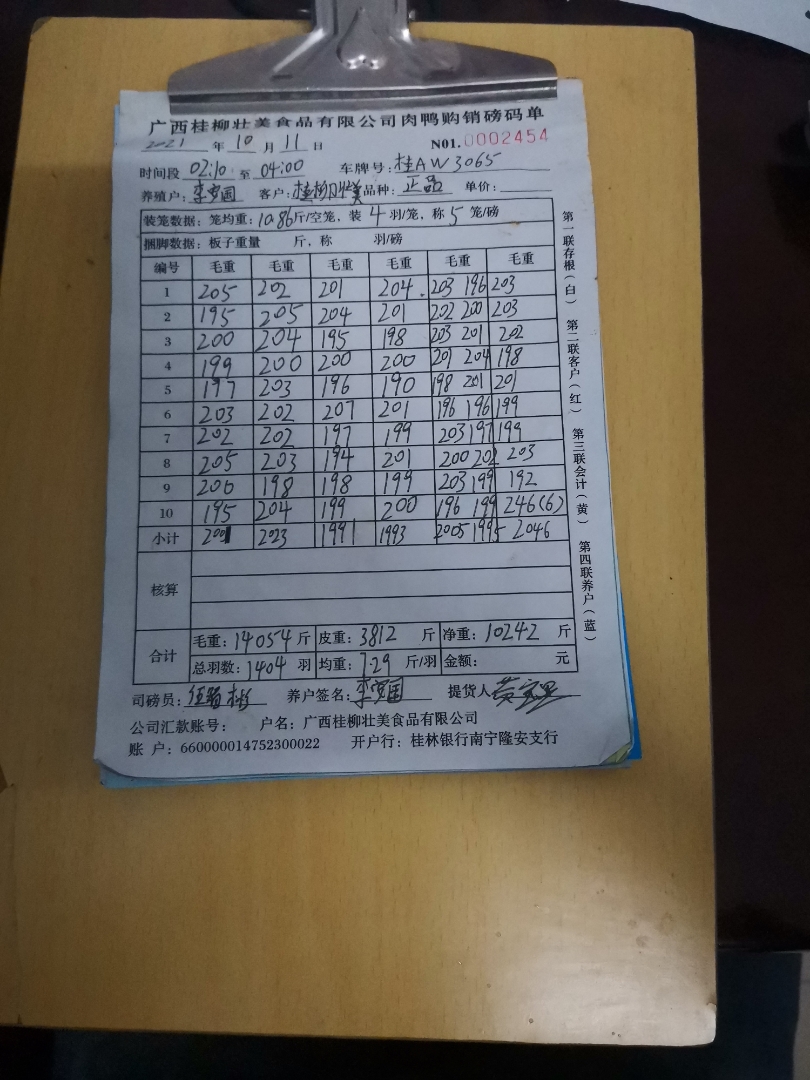 广西桂柳壮美食品有限公司肉鸭购销磅码单
2021 年 10 月 11 日 N01. 0002454
时间段 02:10 至 04:00 车牌号: 桂AW3065
养殖户: 李宝国 客户: 桂柳壮美 品种: 正品 单价:
装笼数据: 笼均重: 10.86 斤/空笼, 装 4 羽/笼, 称 5 笼/磅
捆脚数据: 板子重量 斤, 称 羽/磅
编号 毛重 毛重 毛重 毛重 毛重 毛重
1 205 202 201 204 203 196 203
2 195 205 204 201 202 200 203
3 200 204 195 198 203 201 202
4 199 200 200 200 201 204 198
5 197 203 196 190 198 201 201
6 203 202 207 201 196 196 199
7 202 202 197 199 203 197 199
8 205 203 194 201 200 202 203
9 200 198 198 199 203 199 192
10 195 204 199 200 196 199 246(6)
小计 2001 2023 1991 1993 2005 1995 2046
核算
合计 毛重: 14054 斤 皮重: 3812 斤 净重: 10242 斤
总羽数: 1404 羽 均重: 7.29 斤/羽 金额: 元
司磅员: 养户签名: 李宝国 提货人
公司汇款账号: 户名: 广西桂柳壮美食品有限公司
账 户: 660000014752300022 开户行: 桂林银行南宁隆安支行
第一联存根(白) 第二联客户(红) 第三联会计(黄) 第四联养户(蓝)